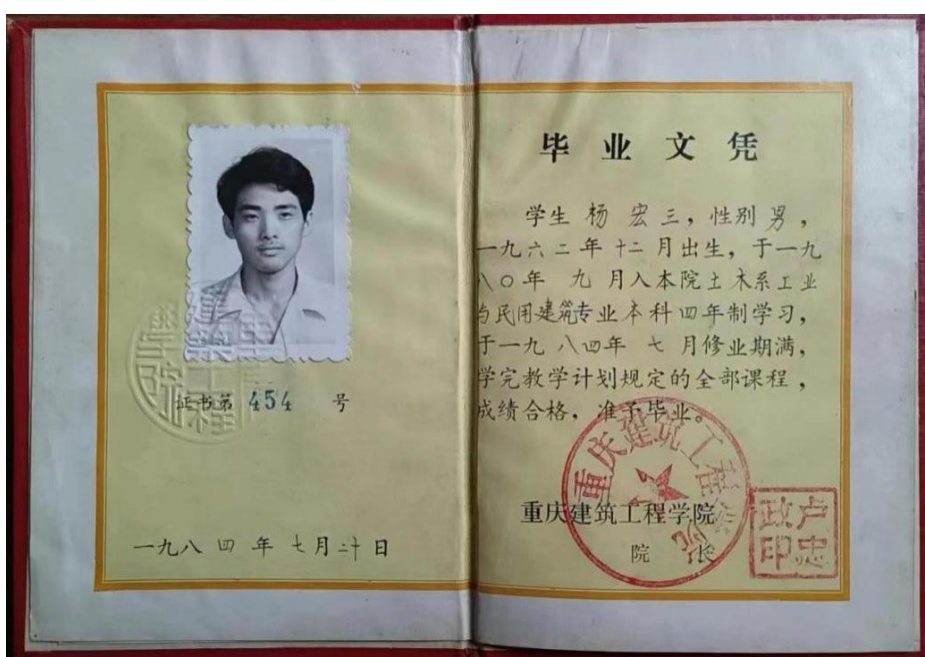 证书第 454 号
一九八四年七月二十日
毕业文凭
学生 杨宏三，性别男，
一九六二年十二月出生，于一九
八〇年 九 月入本院土木系工业
与民用建筑专业本科四年制学习，
于一九八四年 七 月修业期满，
学完教学计划规定的全部课程，
成绩合格，准予毕业。
重庆建筑工程学院
院 长
重庆建筑工程学院
卢忠政印